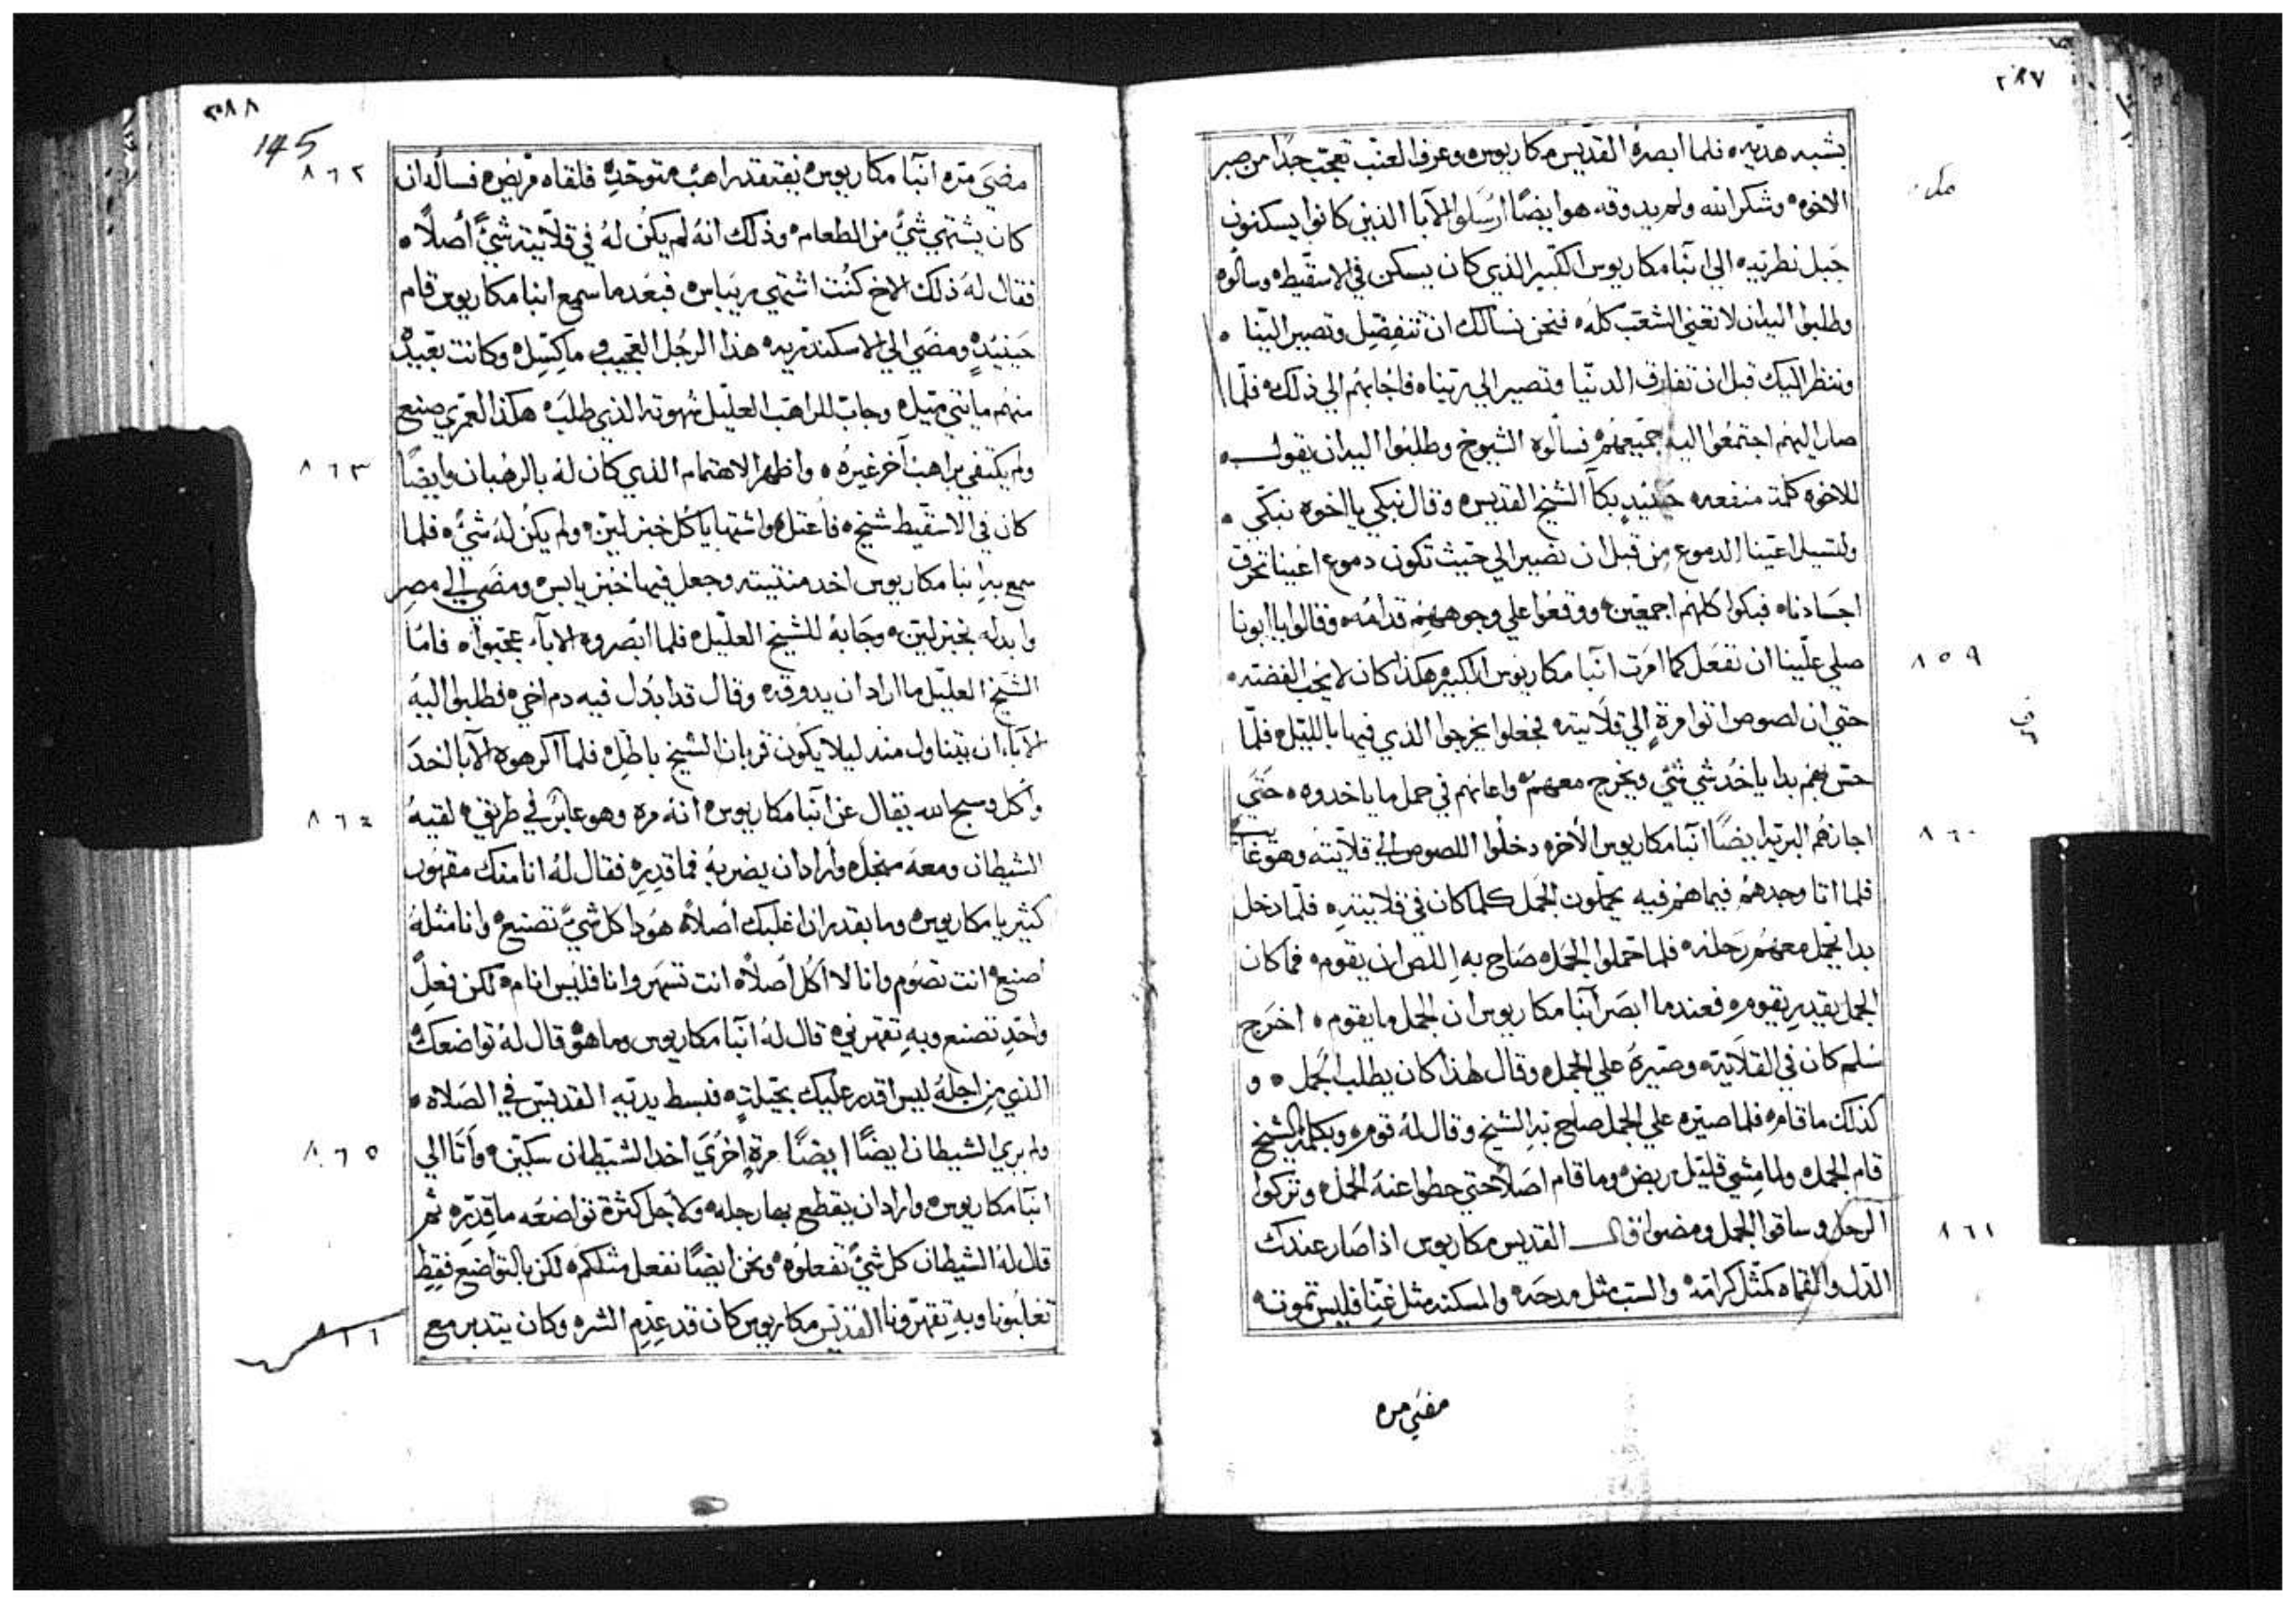 ٢٨٧
بشبه هديه ٥ فلما ابصره القديس مكاريوس ٥ وعرف العنب تعجب جدًا من صبر
الاخوه ٥ وشكر الله ولم يدوقه هو ايضًا ارسلوا الابا الذين كانوا يسكنون
جبل نطريه ٥ الي انبا مكاريوس الكبير الذي كان يسكن في الاسقيط ٥ وسالوه
وطلبوا اليه ان لا تعني الشعب كله ٥ فنحن نسالك ان تتفضل وتصير الينا ٥
وننظر اليك قبل ان تفارق الدنيا وتصير الي ربنا ٥ فاجابهم الي ذلك ٥ فلما
صار اليهم اجتمعوا اليه جميعهم ٥ فسالوه الشيوخ وطلبوا اليه ان يقول ٥
للاخوه كلمة منفعه ٥ حينيدٍ بكا الشيخ القديس ٥ وقال نبكي يا اخوه نبكي ٥
ولتسيل اعيننا الدموع من قبل ان نصير الي حيث تكون دموع اعيننا تحرق
اجسادنا ٥ فبكوا كلهم اجمعين ٥ ووقعوا علي وجوههم قدامه ٥ وقالوا يا ابونا
٨٥٩
صلي علينا ان نفعل كما امرت انبا مكاريوس الكبير هكذا كان لا يحب الفضه ٥
حتي ان لصوص اتوا مرةٍ الي قلايته فجعلوا يخرجوا الذي فيها بالليل ٥ فلما
حس بهم بدا ياخذ شي شي ويخرج معهم ٥ واعانهم في حمل ما ياخدوه ٥ حتي
٨٦٠
اجازهم البريه ايضًا انبا مكاريوس الاخر ٥ دخلوا اللصوص الي قلايته وهو غايب
فلما اتا وجدهم فيما هم فيه يحملون الجمل كلما كان في قلايته ٥ فلما دخل
بدا يحمل معهم رحله ٥ فلما حملوا الجمل ٥ صاح به اللص ان يقوم ٥ فما كان
الجمل يقدر يقوم ٥ فعندما ابصر انبا مكاريوس ان الجمل ما يقوم ٥ اخرج
سلم كان في القلايه ٥ وصيره علي الجمل ٥ وقال لهذا كان يطلب الجمل ٥ و
كذلك ما قام ٥ فلما صيره علي الجمل صاح به الشيخ وقال له قوم ٥ وبكلمة الشيخ
قام الجمل ٥ ولما مشي قليل ربض ٥ وما قام اصلا حتي حطوا عنه الحمل ٥ وتركوا
٨٦١
الرحل وساقوا الجمل ومضوا قال القديس مكاريوس اذا صار عندك
الذل والقماه كمثل كرامة ٥ والسب مثل مدحه ٥ والمسكنه مثل غنا فليس تموت ٥
مضي مره
٢٨٨
145
٨٦٢
مضي مره انبا مكاريوس ٥ يفتقد راهب متوحدٍ ٥ فلقاه مريض ٥ فساله ان
كان يشتهي شيً من الطعام ٥ وذلك انه لم يكن له في قلايته شيً اصلًا ٥
فقال له ذلك الاخ كنت اشتهي ريباس ٥ فبعد ما سمع انبا مكاريوس قام
حينيدٍ ٥ ومضي الي الاسكندريه ٥ هذا الرجل العجيب وما كسل ٥ وكانت بعيده
منهم مايتي ميل ٥ وجاب للراهب العليل شهوته الذي طلب ٥ هكذا لعمري صنع
٨٦٣
ولم يكتفي براهب اخر غيره ٥ واظهر الاهتمام الذي كان له بالرهبان وايضًا
كان في الاسقيط شيخ ٥ فاعتل ٥ واشتها ياكل خبز لين ٥ ولم يكن له شي ٥ فلما
سمع به انبا مكاريوس اخد منتنيته وجعل فيها خبز يابس ٥ ومضي الي مصر
وابدله بخبز لين ٥ وجابه للشيخ العليل ٥ فلما ابصروه الاباء عجبوا ٥ فاما
الشيخ العليل ما اراد ان يدوقه ٥ وقال قد ابدل فيه دم اخي ٥ فطلبوا اليه
الاباء ان يتناول منه ليلا يكون قربان الشيخ باطل ٥ فلما اكرهوه الابا اخد
٨٦٤
واكل وسبح الله يقال عن انبا مكاريوس ٥ انه مره وهو عابر في طريق ٥ لقيه
الشيطان ومعه منجل ٥ واراد ان يضربه فما قدر ٥ فقال له انا منك مقهور
كثير يا مكاريوس ٥ وما بقدر ان اغلبك اصلًا ٥ هودا كل شيً تصنع ٥ وانا مثله
اصنع ٥ انت تصوم وانا لا اكل اصلًا ٥ انت تسهر وانا فليس انام ٥ لكن فعلٍ
واحدٍ تصنع وبه تقهرني ٥ قال له انبا مكاريوس وما هو ٥ قال له تواضعك ٥
الذي من اجله ليس اقدر عليك بحيلةٍ ٥ فبسط يديه القديس في الصلاه ٥
٨٦٥
ولم يري الشيطان ايضًا ايضًا مرةٍ اخري اخد الشيطان سكين ٥ واتا الي
انبا مكاريوس ٥ واراد ان يقطع بها رجله ٥ ولاجل كثرة تواضعه ما قدر ٥ ثم
قال له الشيطان كل شيً تفعلوه ٥ ونحن ايضًا نفعل مثلكم ٥ لكن بالتواضع فقط
٨٦٦
تغلبونا وبه تقهرونا القديس مكاريوس كان قد عدم الشره وكان يتدبر مع